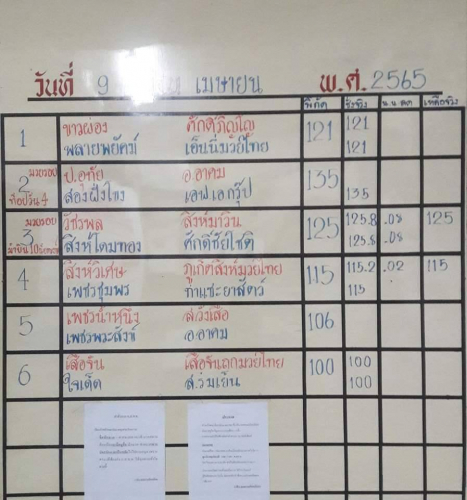 วันที่ 9 เมษายน พ.ศ. 2565
พิกัด ชั่งจริง น.น.ลด เหลือจริง
1 ขาวผ่อง ศักดิ์ภิญโญ 121 121
พลายพยัคฆ์ เอ็นนี่มวยไทย 121
2 มวยรอบ ป.อุทัย อ.อาคม 135
ท็อปวัน 4 สองฝั่งโขง เอฟเอกรุ๊ป 135
3 มวยรอบ วัชรพล สิงห์มาวิน 125 125.8 .08 125
สิงห์โดมทอง ศักดิ์ชัยโชติ 125.8 .08
4 สิงห์วิเศษ ภูเก็ตสิงห์มวยไทย 115 115.2 .02 115
เพชรชุมพร ท่าแซะยาสัตว์ 115
5 เพชรน้ำหนึ่ง ส.วังเสือ 106
เพชรพระสังข์ อ.อาคม
6 เสือรัน เสือรันถกมวยไทย 100 100
ใจเด็ด ส.ร่มเย็น 100